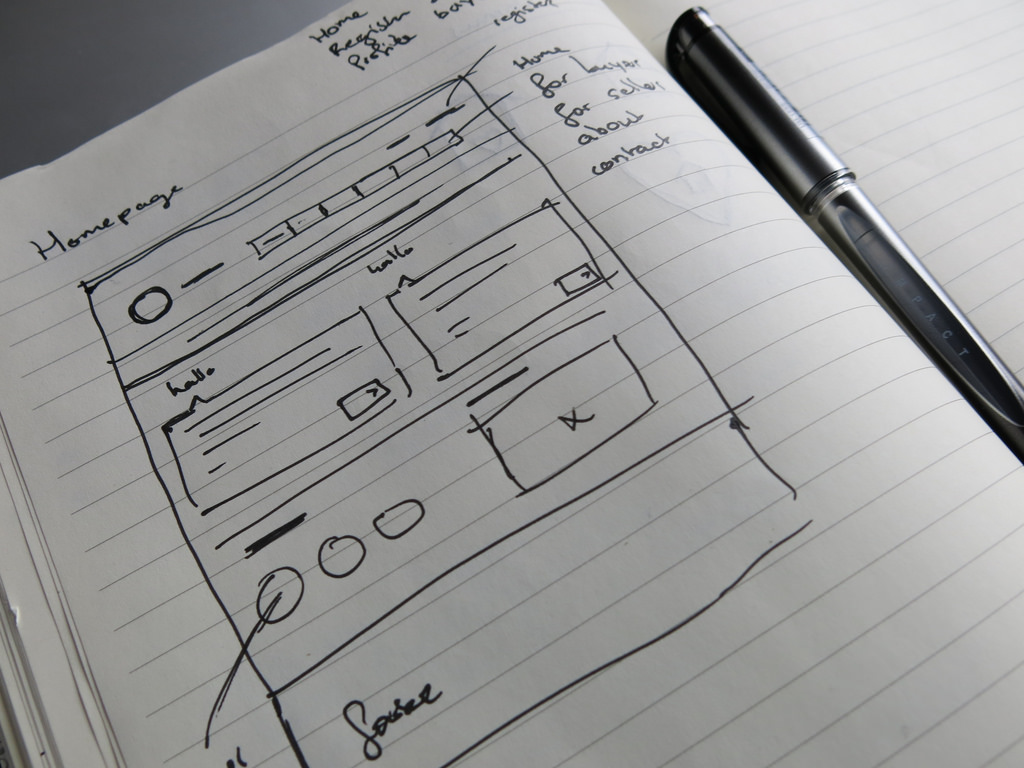 Home
Register
Profile
buy
register
Home
for buyer
for seller
about
contact
Homepage
hallo
hallo
PACT